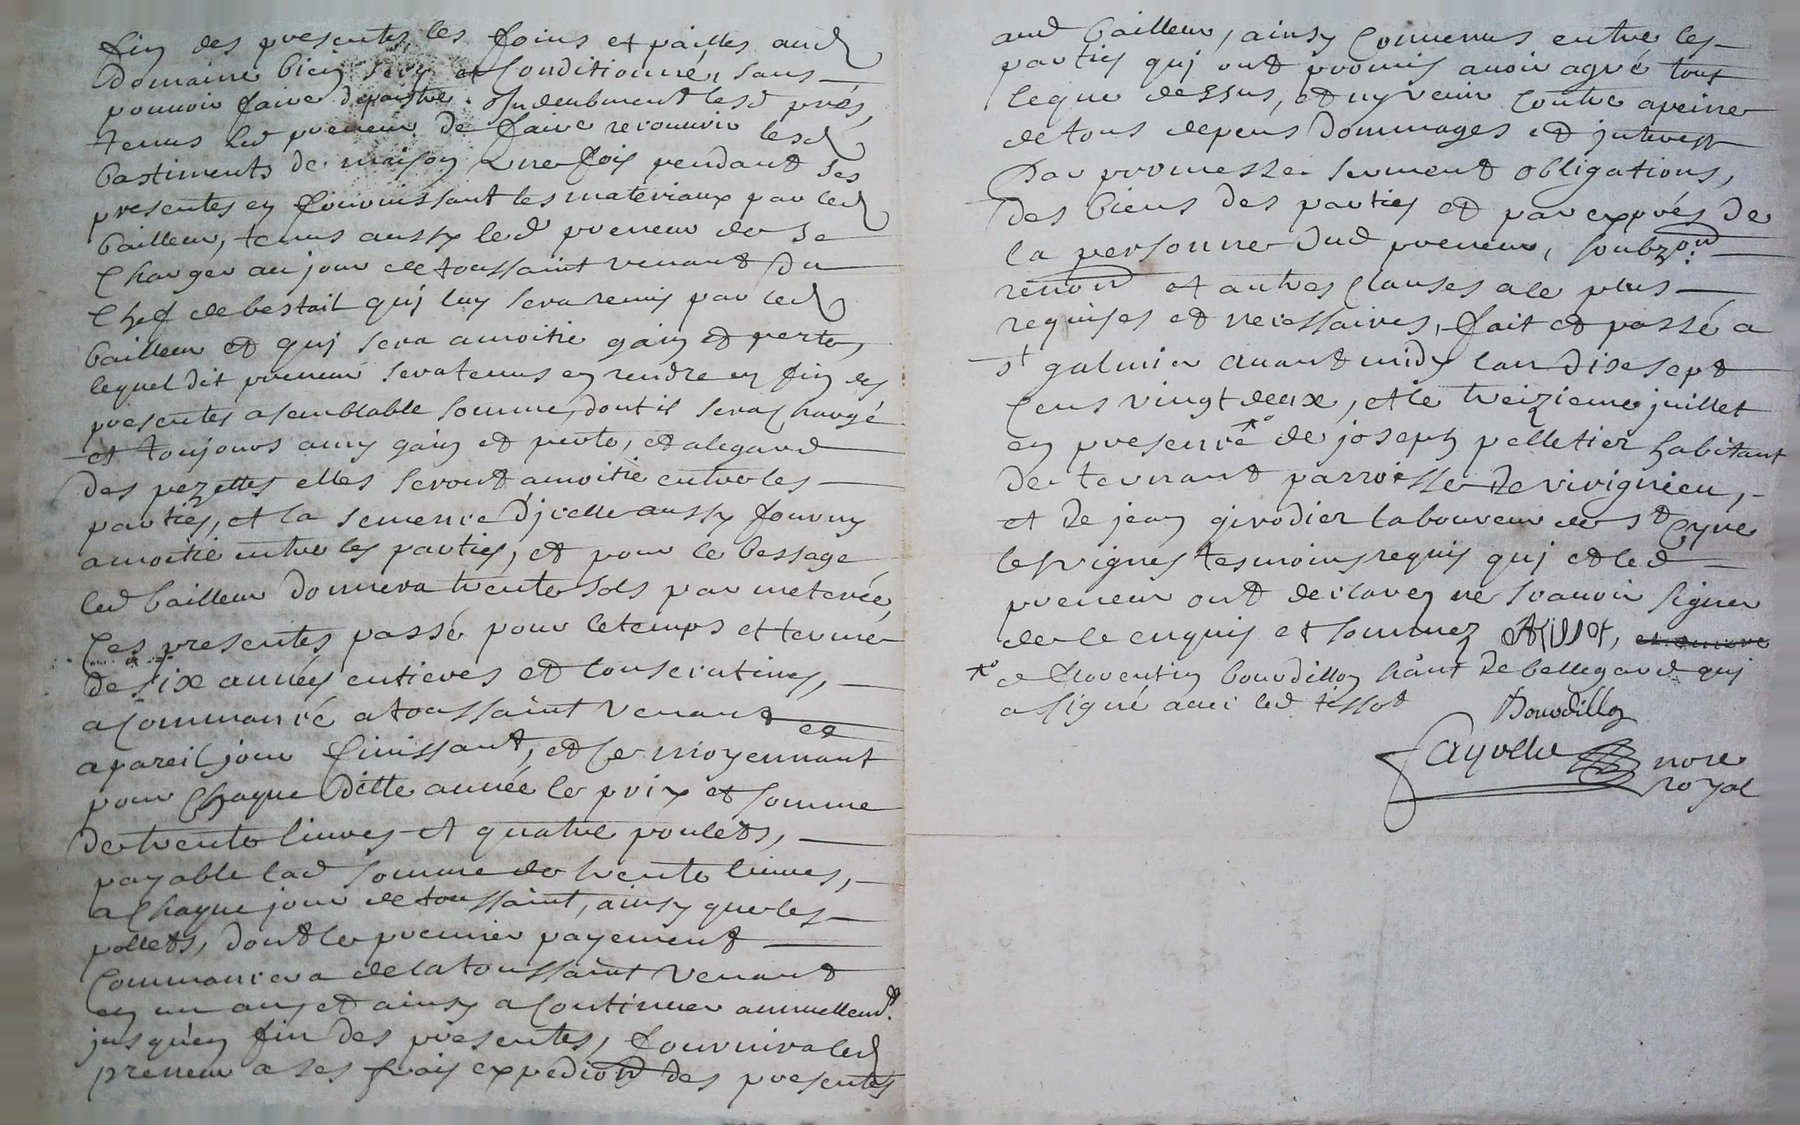 fin des presentes, les foins et pailles aud
domaine bien secq et conditionné, sans
pouvoir faire depaistre induëbment lesd prés,
tenus led preneur de faire recouvrir lesd
bastiments de maison une fois pendant ses
presentes en fournissant les materiaux par led
bailleur, tenus aussy led preneur de se
charger au jour de toussaint venant du
chef de bestail quj luy sera remis par led
bailleur et quj sera a moitie gain et perte,
lequel dit preneur sera tenus en rendre en fin des
presentes a semblable somme, dont il sera chargé
et toujours a my gain et perte, et a legard
des pezettes elles seront a moitie entre les
parties, et la semence d'jcelle aussy fourny
a moitié entre les parties, et pour le bessage
led bailleur donnera trente sols par meterée,
Ces presentes passé pour le temps et terme
de six années entieres et consecutives,
a commancé a toussaint venant et
a pareil jour finissant, et ce moyennant
pour chaque ditte année le prix et somme
de trente livres et quatre poulets,
payable lad somme de trente livres,
a chaque jour de toussaint, ainsy que les
pollets, dont le premier payement
commancera de la toussaint venant
en un an, et ainsy a continuer annuellemt.
jusqu'en fin des presentes, fournira led
preneur a ses frais expedion des presentes
aud bailleur, ainsy convenus entre les
parties quj ont promis avoir agré tout
le que dessus, et ny venir contre a peine
de tous depens dommages et jnterest
Par promesse serment obligations,
des biens des parties et par exprés de
la personne dud preneur, soubzon.
renon et autres clauses a le plus
requises et necessaires, fait et passé a
st galmier avant midy lan dix sept
cens vingt deux, et le treizieme juillet
en presence * de joseph pelletier habitant
de teurant parroisse de virignieu,
et de jean girodier laboureur de st Cyre
les vignes tesmoins requis quj et led
preneur ont declarez ne scavoir signer
de ce enquis et sommez ATissot,
* et de floventin bourdillon hant de bellegarde quj
a signé avec led tissot
Bourdillon
fayolle nore
royal